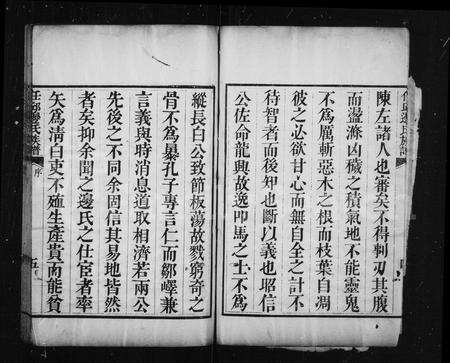 陳左諸人也審矣不得剚刃其腹
而盪滌凶穢之積氣地不能靈鬼
不為厲斬惡木之根而枝葉自凋
彼之必欲甘心而無自全之計不
待智者而後知也斷以義也昭信
公佐命龍興故逸叩馬之士不為
縱長白公致節板蕩故戮窮奇之
骨不為暴孔子專言仁而鄒嶧兼
言義與時消息道取相濟若兩公
先後之不同余固信其易地皆然
者矣抑余聞之邊氏之仕宦者率
矢為清白吏不殖生產貴而能貧
任邱邊氏族譜
序
五